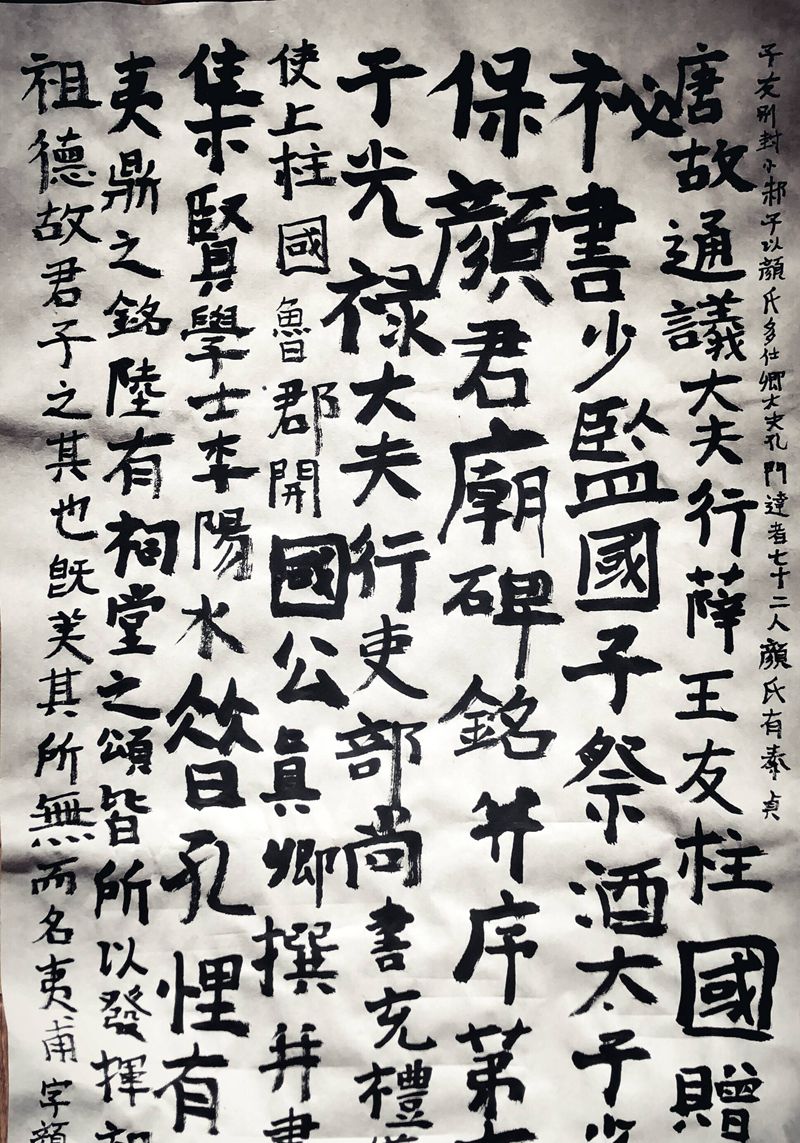 子友別封小邾子以顏氏多仕卿大夫孔門達者七十二人顏氏有秦貞
唐故通議大夫行薛王友柱國贈
祕書少監國子祭酒太子少
保顏君廟碑銘并序第
子光禄大夫行吏部尚書充禮
使上柱國魯郡開國公眞卿撰并書
集賢學士李陽水㫺孔悝有
夷鼎之銘陸有祠堂之頌皆所以發揮
祖德故君子之其也既美其所無而名夷甫字顏